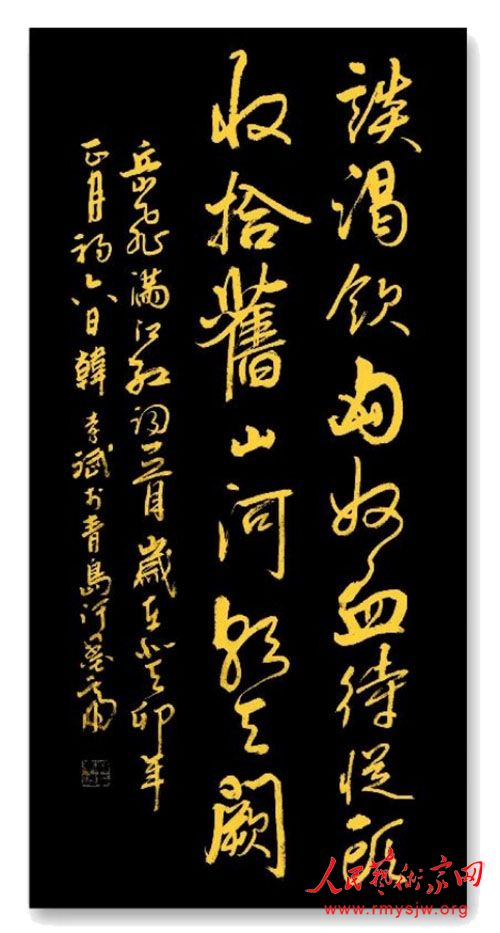 談渴飲匈奴血待從頭
收拾舊山河朝天闕
岳飛滿江紅詞 歲在癸卯年
正月初六日韓 斌於青島
人民藝術家网
www.rmysjw.org